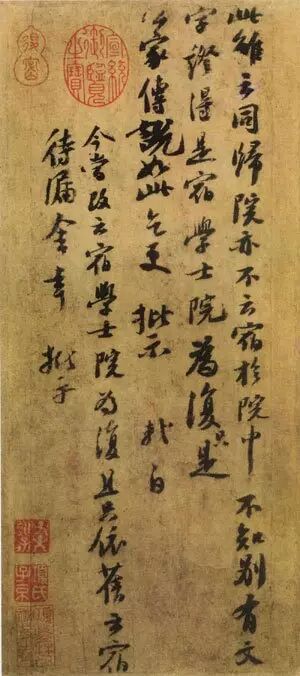 此雖云同歸院亦不云宿於院中 不知別有文
字證得是宿學士院為復只是
公家傳說如此乞更 批示 白
今當改云宿學士院為復且只依舊云宿
待漏舍幸 批示
宣統御覽之寶